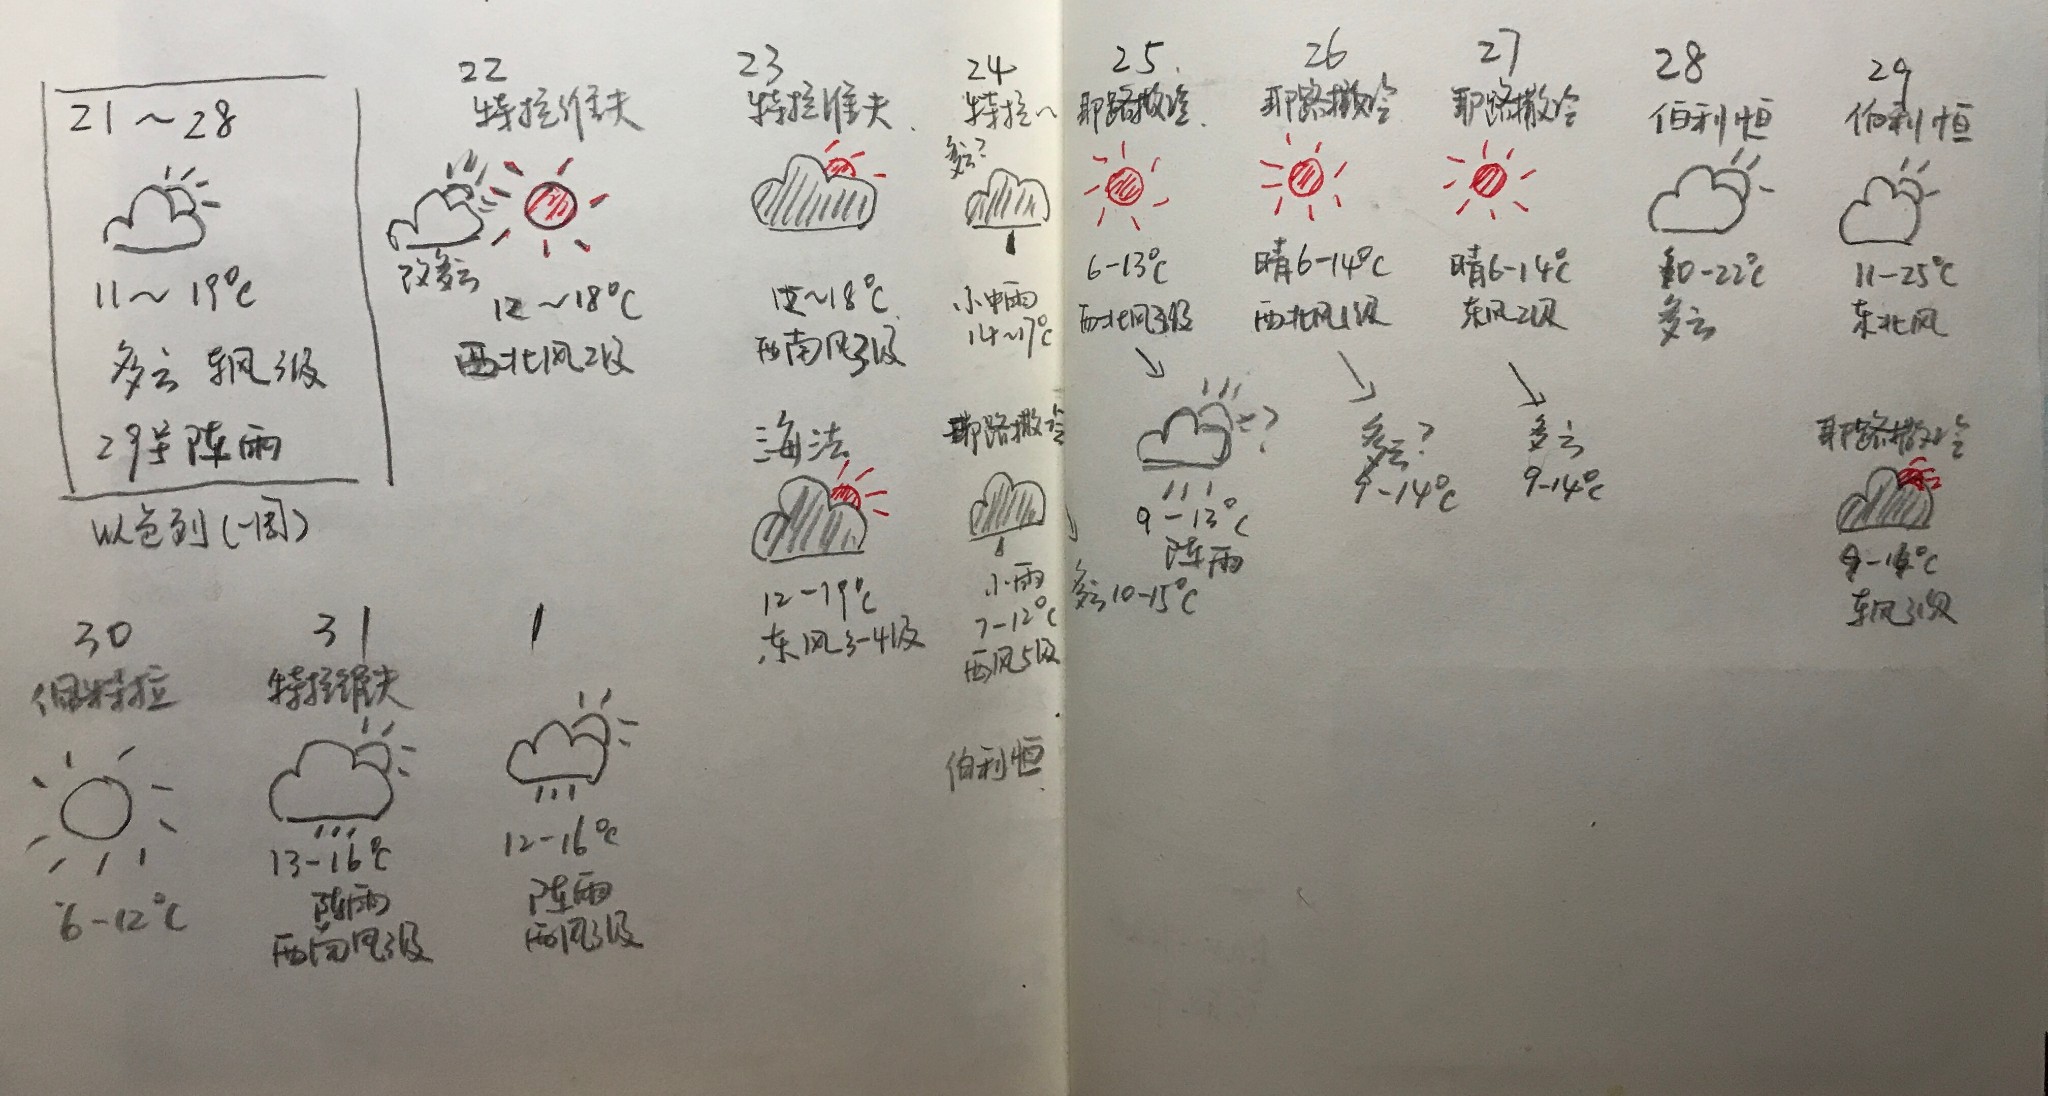 21~28
11~19℃
多云 东风3级
29号阵雨
以色列(一周)
22
特拉维夫
改多云
12~18℃
西北风2级
23
特拉维夫
12~18℃
西南风3级
海法
12-19℃
东风3-4级
24
特拉~
多云?
小中雨
14~17℃
耶路撒冷
小雨
7-12℃
西风5级
多云10-15℃
伯利恒
25
耶路撒冷
6-13℃
西北风3级
?
9-13℃
阵雨
26
耶路撒冷
晴6-14℃
西北风1级
多云?
9-14℃
27
耶路撒冷
晴6-14℃
东风2级
多云
9-14℃
28
伯利恒
10-22℃
多云
29
伯利恒
11-25℃
东北风
耶路撒冷
9-14℃
东风3级
30
佩特拉
6-12℃
31
特拉维夫
13-16℃
阵雨
西南风3级
1
12-16℃
阵雨
西风3级